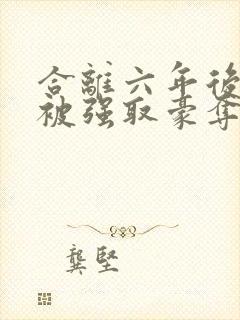 合離六年後
被强取豪奪
龔堅